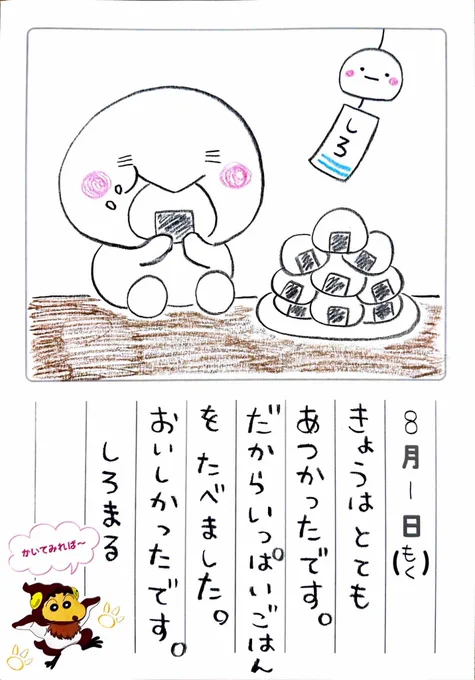 しろ
8月1日(もく)
きょうはとても
あつかったです。
だからいっぱいごはん
をたべました。
おいしかったです。
しろまる
かいてみれば〜